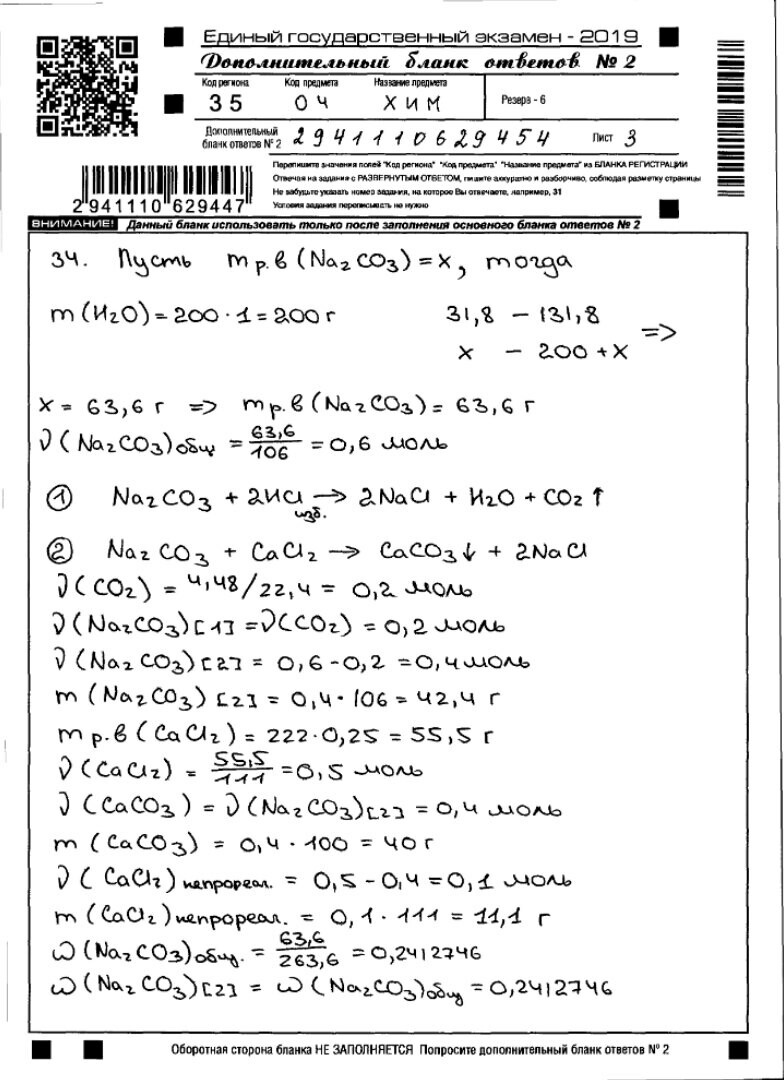 Единый государственный экзамен - 2019
Дополнительный бланк ответов № 2
Код региона Код предмета Название предмета
35 04 ХИМ Резерв - 6
Дополнительный бланк ответов № 2 2941110629454 Лист 3
Перепишите значения полей "Код региона" "Код предмета" "Название предмета" из БЛАНКА РЕГИСТРАЦИИ
Отвечая на задания с РАЗВЕРНУТЫМ ОТВЕТОМ, пишите аккуратно и разборчиво, соблюдая разметку страницы
Не забудьте указать номер задания, на которое Вы отвечаете, например, 31
Условия задания переписывать не нужно
2941110 629447
ВНИМАНИЕ! Данный бланк использовать только после заполнения основного бланка ответов № 2
34. Пусть m р.в (Na2CO3) = x, тогда
m (H2O) = 200 · 1 = 200 г 31,8 – 131,8
x – 200 + x =>
x = 63,6 г => m р.в (Na2CO3) = 63,6 г
ν (Na2CO3) общ = 63,6/106 = 0,6 моль
① Na2CO3 + 2HCl изб. → 2NaCl + H2O + CO2 ↑
② Na2CO3 + CaCl2 → CaCO3 ↓ + 2NaCl
ν (CO2) = 4,48/22,4 = 0,2 моль
ν (Na2CO3) [1] = ν (CO2) = 0,2 моль
ν (Na2CO3) [2] = 0,6 - 0,2 = 0,4 моль
m (Na2CO3) [2] = 0,4 · 106 = 42,4 г
m р.в (CaCl2) = 222 · 0,25 = 55,5 г
ν (CaCl2) = 55,5/111 = 0,5 моль
ν (CaCO3) = ν (Na2CO3) [2] = 0,4 моль
m (CaCO3) = 0,4 · 100 = 40 г
ν (CaCl2) непрореаг. = 0,5 - 0,4 = 0,1 моль
m (CaCl2) непрореаг. = 0,1 · 111 = 11,1 г
ω (Na2CO3) общ. = 63,6/263,6 = 0,2412746
ω (Na2CO3) [2] = ω (Na2CO3) общ = 0,2412746
Оборотная сторона бланка НЕ ЗАПОЛНЯЕТСЯ Попросите дополнительный бланк ответов № 2